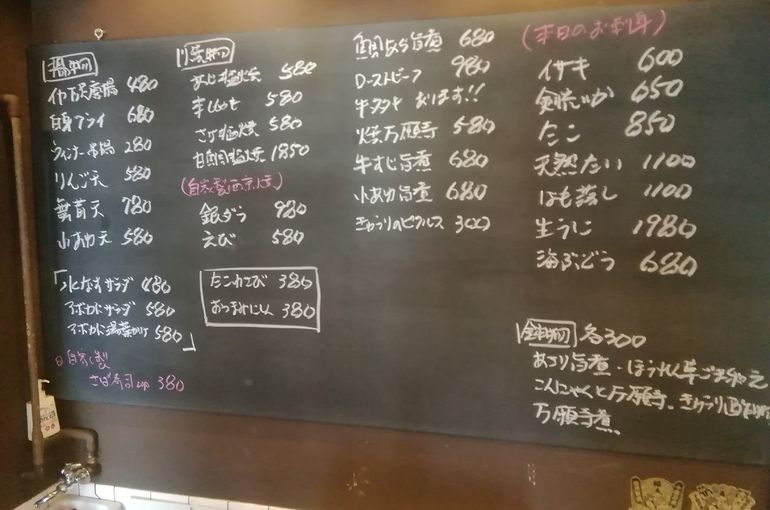 揚物
白身フライ 680
ウィンナー串揚 280
りんご天 580
無花果天 780
小あゆ天 580
「水なすサラダ 480
アボカドサラダ 580
アボカド湯葉かけ 580」
自家製
さば寿司 380
焼物
あじ塩焼 580
ししゃも 580
さけ塩焼 580
1850
(自家製西京焼)
銀ダラ 980
えび 580
たこわさび 380
おつまみにしん 380
鯛あら旨煮 680
ローストビーフ 980
牛スタキ あります!!
焼万願寺 580
牛すじ旨煮 680
小あゆ旨煮 680
きゅうりのピクルス 300
(本日のお刺身)
イサキ 600
剣先いか 650
たこ 850
天然たい 1100
はも落し 1100
生うに 1980
海ぶどう 680
鉢物 各300
あさり旨煮・ほうれん草ごま和え
こんにゃくと万願寺、きゅうり
万願寺煮、